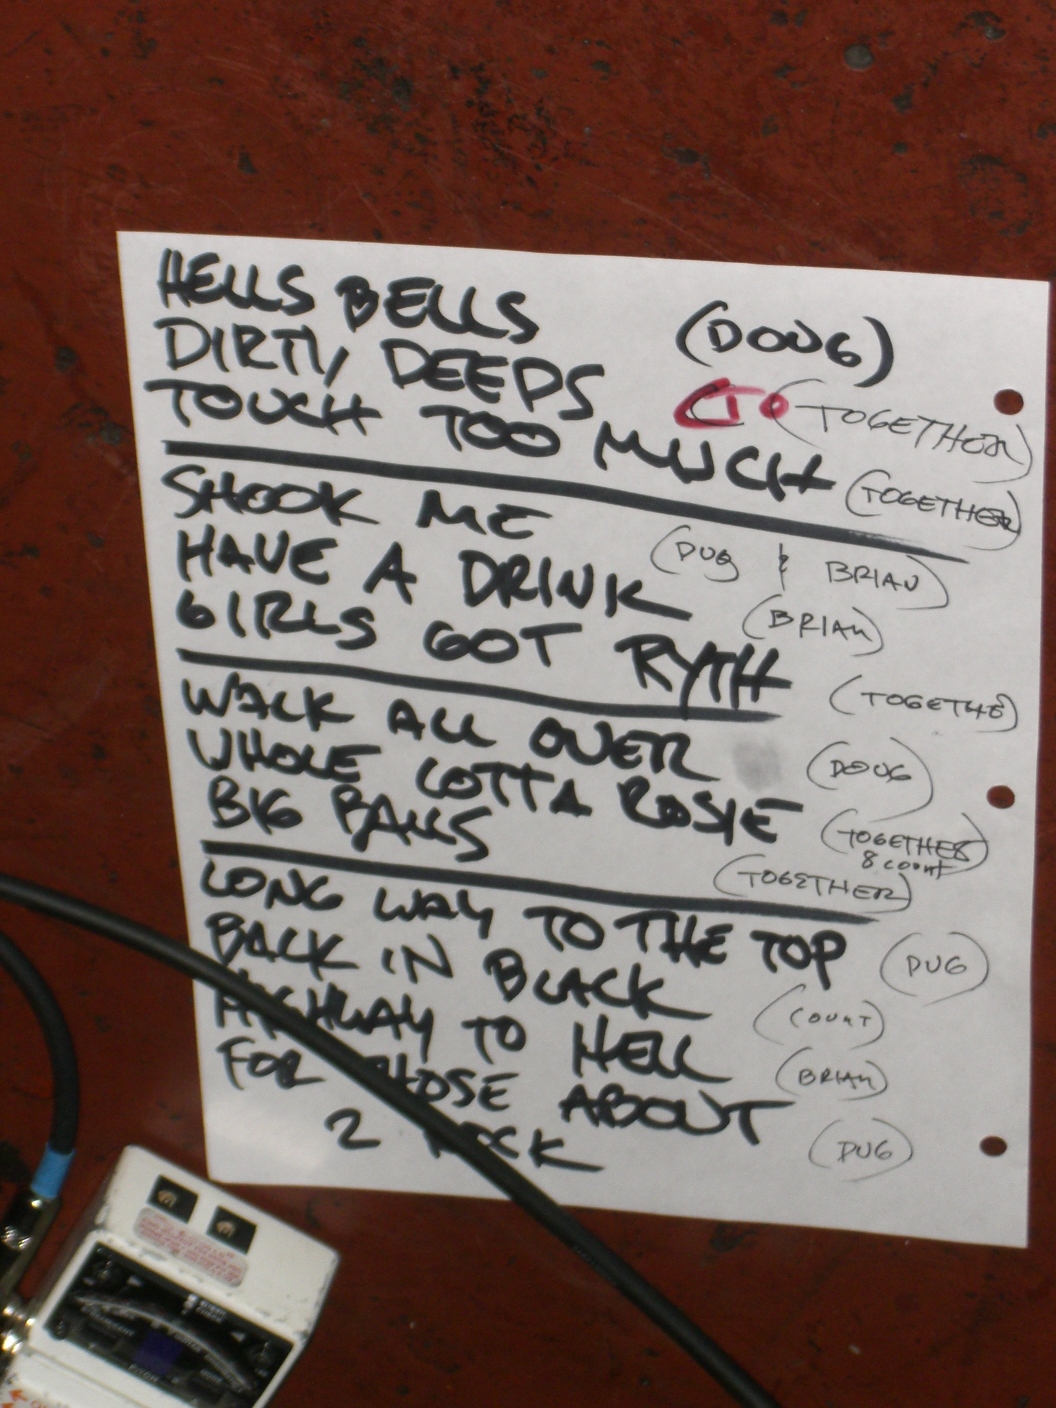 HELLS BELLS (DOUG)
DIRTY DEEDS (TOGETHER)
TOUCH TOO MUCH (TOGETHER)
SHOOK ME (DUG & BRIAN)
HAVE A DRINK (BRIAN)
GIRLS GOT RYTH (TOGETHE)
WALK ALL OVER (DOUG)
WHOLE LOTTA ROSIE (TOGETHER
8 count)
BIG BALLS (TOGETHER)
LONG WAY TO THE TOP (DUG)
BACK IN BLACK (COUNT)
HIGHWAY TO HELL (BRIAN)
FOR THOSE ABOUT
2 ROCK (DUG)